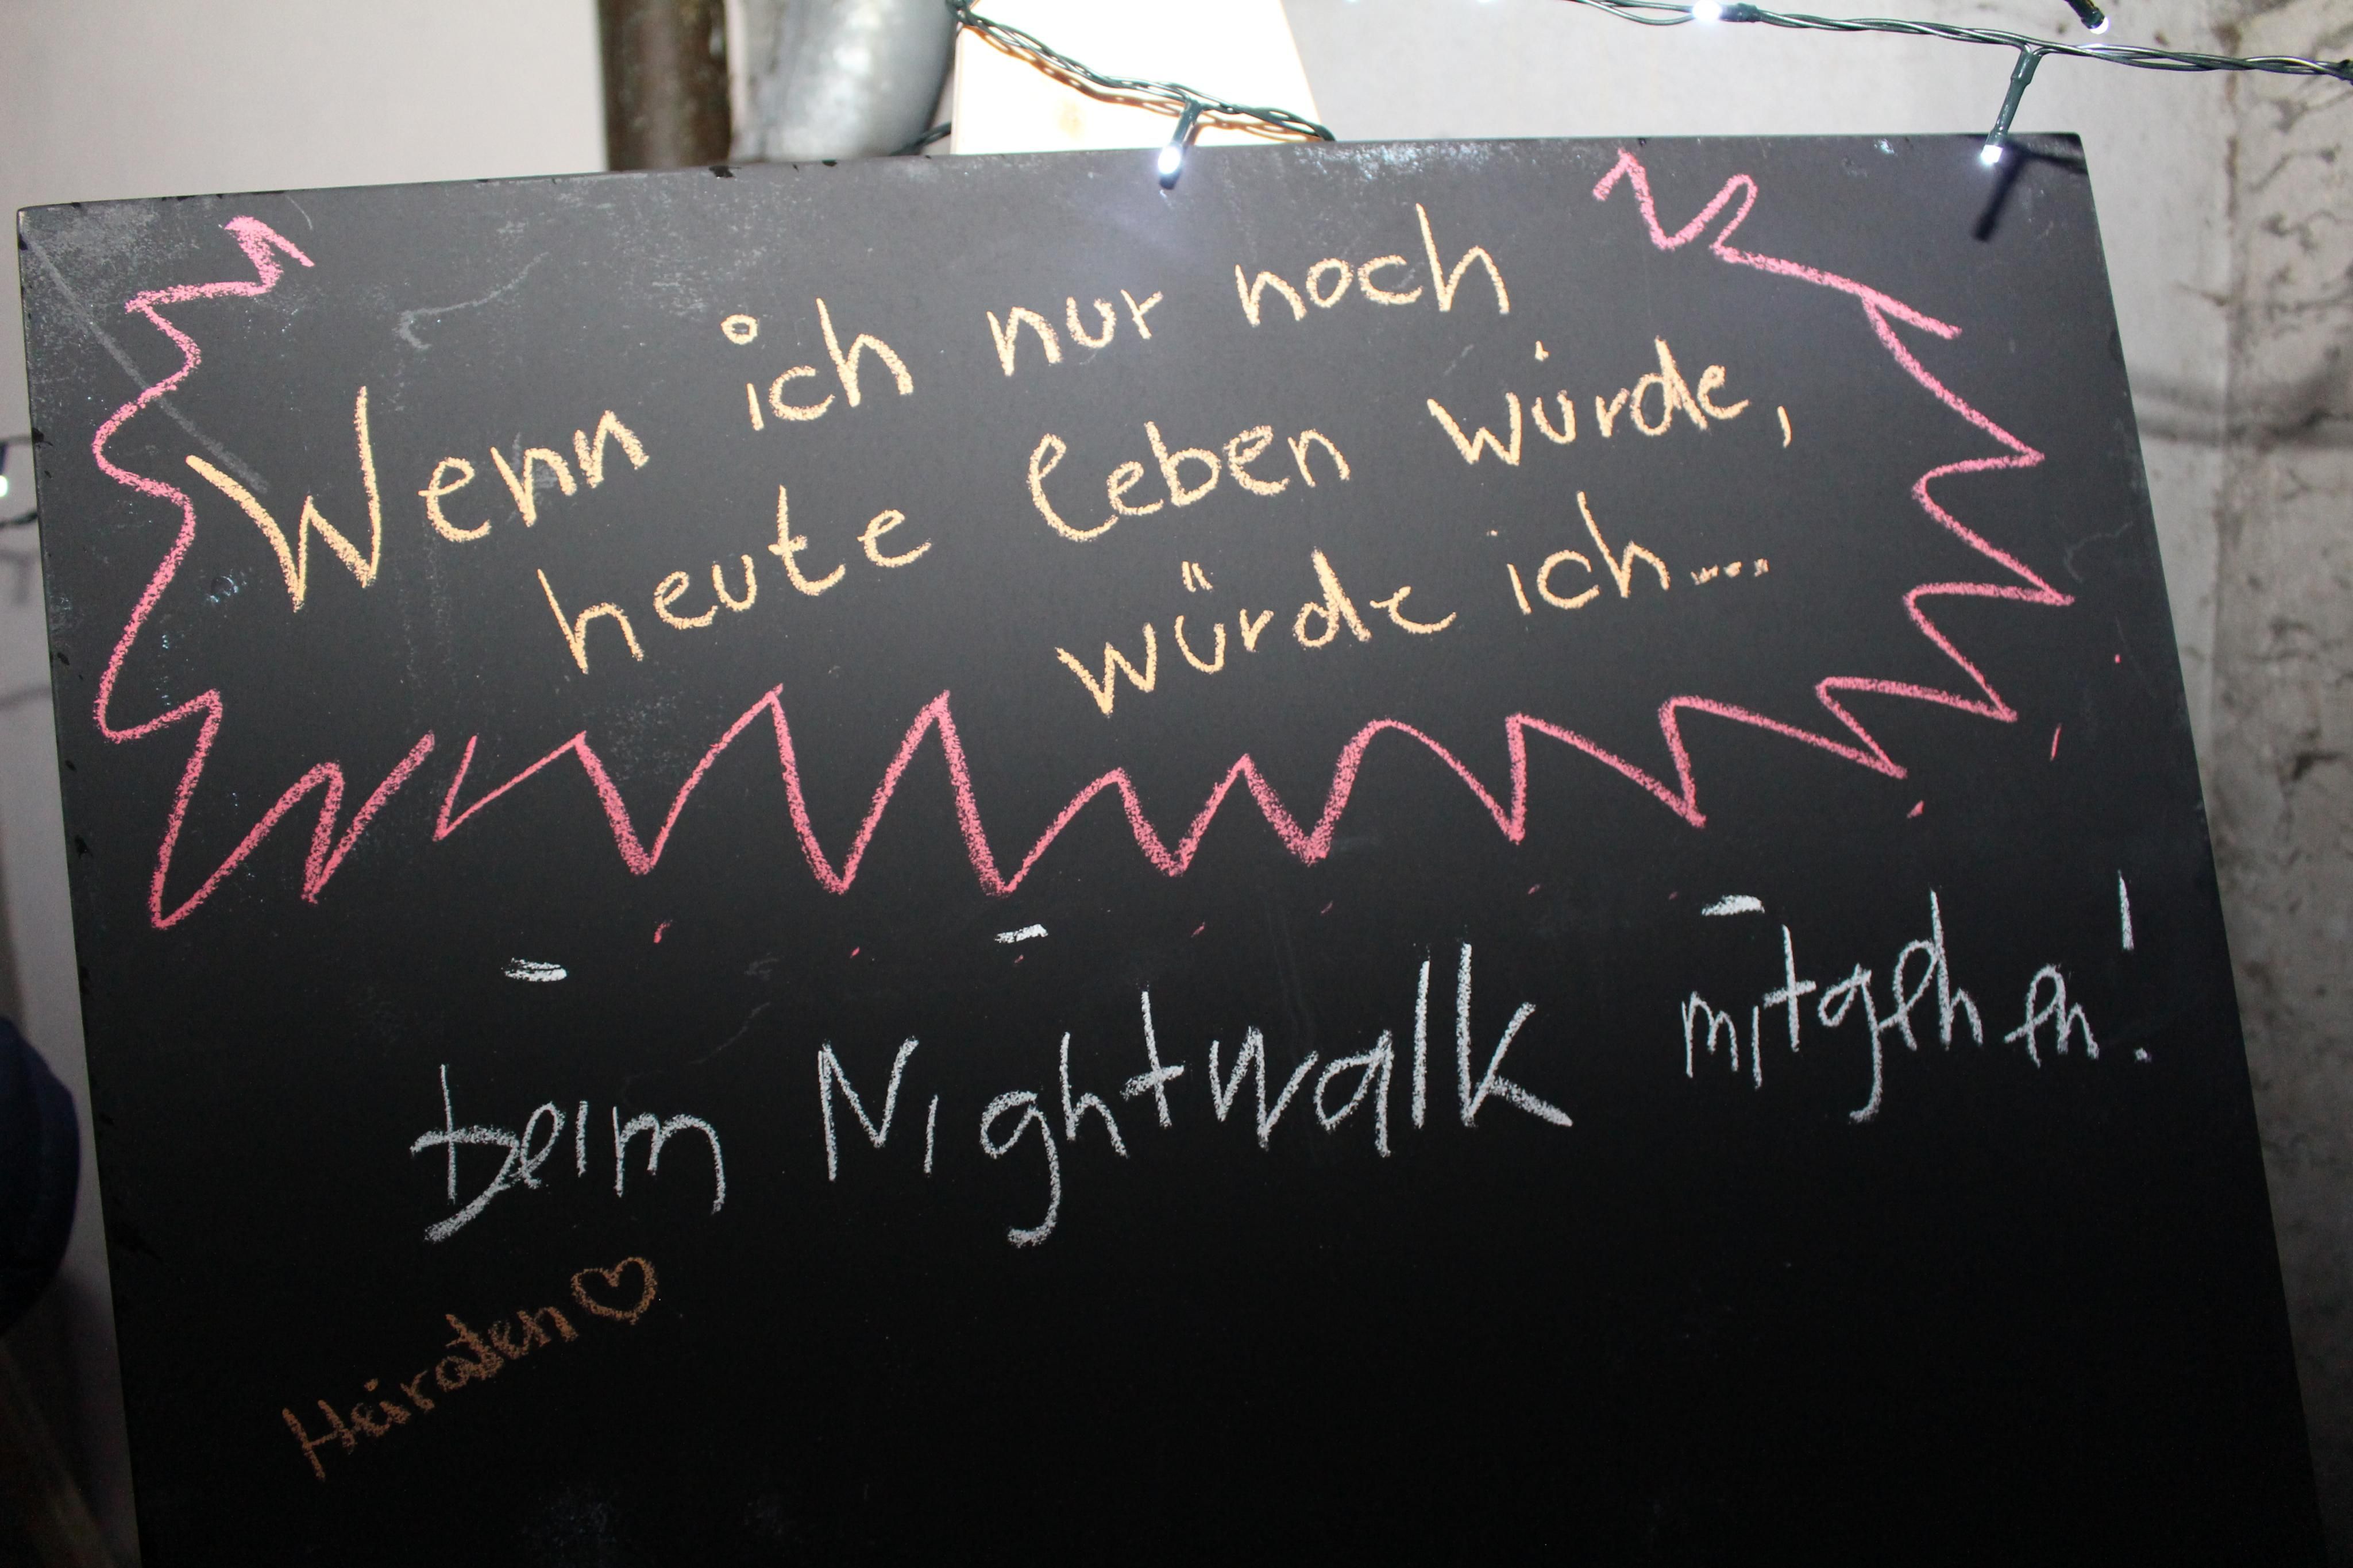 Wenn ich nur noch
heute leben würde,
würde ich...
beim Nightwalk mitgehen!
Heiraten ♡